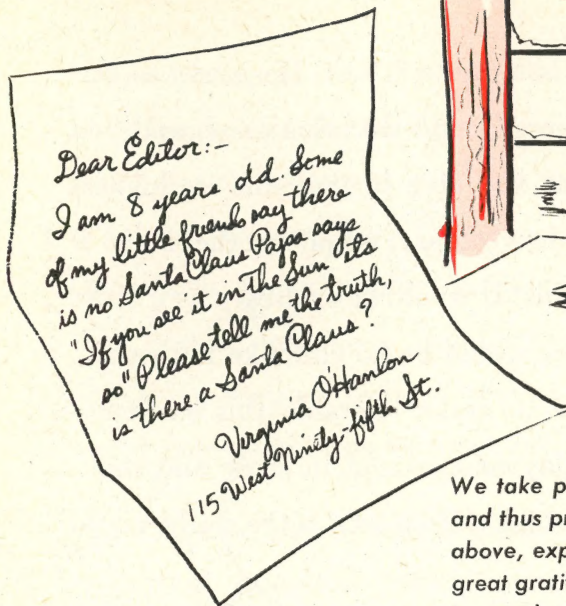 Dear Editor:-
I am 8 years old. Some
of my little friends say there
is no Santa Claus Papa says
"If you see it in The Sun its
so" Please tell me the truth,
is there a Santa Claus?
Virginia O'Hanlon
115 West Ninety-fifth St.
We take
and thus
above,
great